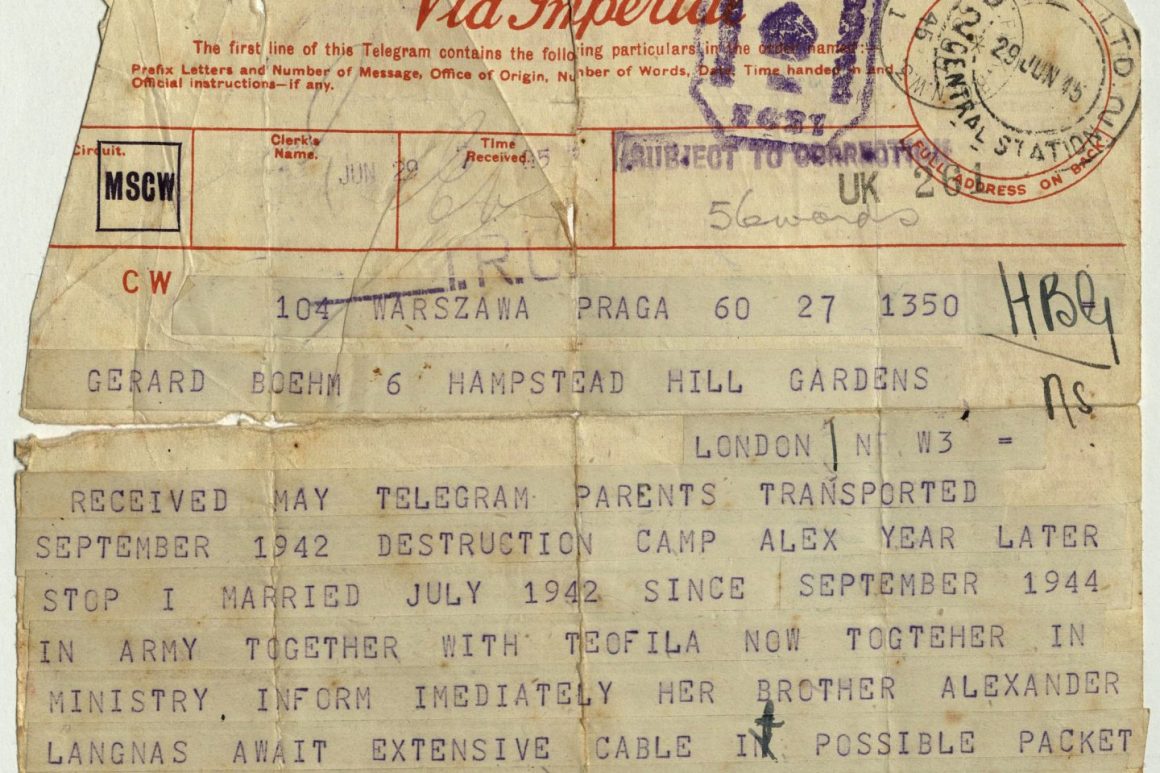 Via Imperial
The first line of this Telegram contains the following particulars in the order named:—
Prefix Letters and Number of Message, Office of Origin, Number of Words, Date, Time handed in and
Official instructions—if any.
LTD
29 JUN 45
CENTRAL STATION
Circuit.
Clerk's
Name.
Time
Received.
MSCW
JUN 29
SUBJECT TO CORRECTION
FULL ADDRESS ON BACK
UK 261
56 words
CW
104 WARSZAWA PRAGA 60 27 1350 =
HBG
GERARD BOEHM 6 HAMPSTEAD HILL GARDENS
ns
LONDON N W3 =
RECEIVED MAY TELEGRAM PARENTS TRANSPORTED
SEPTEMBER 1942 DESTRUCTION CAMP ALEX YEAR LATER
STOP I MARRIED JULY 1942 SINCE SEPTEMBER 1944
IN ARMY TOGETHER WITH TEOFILA NOW TOGTEHER IN
MINISTRY INFORM IMEDIATELY HER BROTHER ALEXANDER
LANGNAS AWAIT EXTENSIVE CABLE IT POSSIBLE PACKET